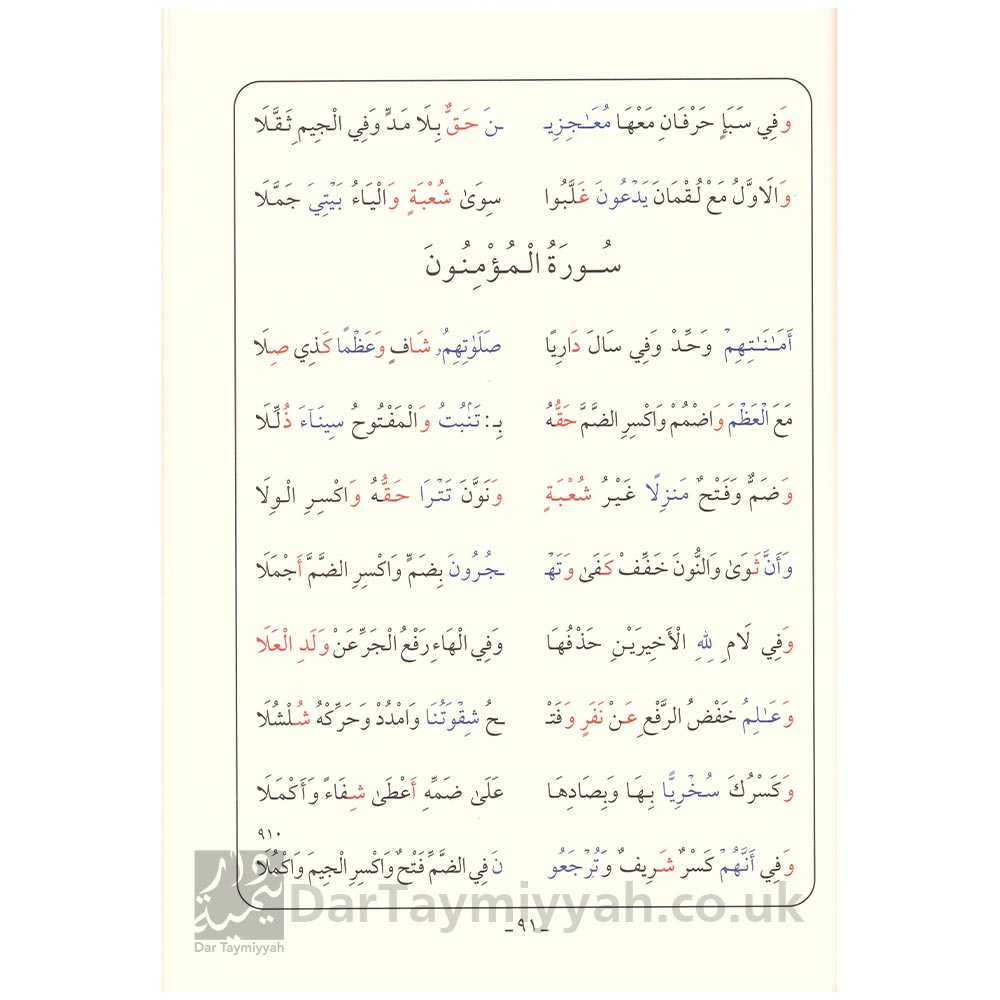 وَفِي سَبَإٍ حَرْفَانِ مَعْهَا مُعَـٰجِزِيـ ـنَ حَقٌّ بِلَا مَدٍّ وَفِي الْجِيمِ ثَقَّلَا
وَالَاوَّلُ مَعْ لُقْمَانَ يَدْعُونَ غَلَّبُوا سِوَىٰ شُعْبَةٍ وَالْيَاءُ بَيْتِيَ جَمَّلَا
سُــورَةُ الْـمُـؤْمِـنُـونَ
أَمَـٰنَـٰتِهِمْ وَحِّدْ وَفِي سَالَ دَارِيًا صَلَوٰتِهِمُۥ شَافٍ وَعَظْمًا كَذِي صِلَا
مَعَ الْعَظْمَ وَاضْمُمْ وَاكْسِرِ الضَّمَّ حَقُّهُ بِـ: تَنۢبُتُ وَالْمَفْتُوحُ سِينَآءَ ذُلِّلَا
وَضَمٌّ وَفَتْحٌ مَنزِلًا غَيْرُ شُعْبَةٍ وَنَوَّنَ تَتْرَا حَقُّهُ وَاكْسِرِ الْوِلَا
وَأَنَّ ثَوَىٰ وَالنُّونَ خَفِّفْ كَفَىٰ وَتَهْـ ـجُرُونَ بِضَمٍّ وَاكْسِرِ الضَّمَّ أَجْمَلَا
وَفِي لَامِ لِلهِ الْأَخِيرَيْنِ حَذْفُهَا وَفِي الْهَاءِ رَفْعُ الْجَرِّ عَنْ وَلَدِ الْعَلَا
وَعَـٰلِمُ خَفْضُ الرَّفْعِ عَنْ نَفَرٍ وَفَتْـ ـحُ شِقْوَتُنَا وَامْدُدْ وَحَرِّكْهُ شُلْشُلَا
وَكَسْرُكَ سُخْرِيًّا بِهَا وَبِصَادِهَا عَلَىٰ ضَمِّهِ أَعْطَىٰ شِفَاءً وَأَكْمَلَا
٩١٠
وَفِي أَنَّهُمْ كَسْرٌ شَرِيفٌ وَتُرْجَعُو نَ فِي الضَّمِّ فَتْحٌ وَاكْسِرِ الْجِيمَ وَاكْمُلَا
ـ ٩١ ـ
دار تيمية
Dar Taymiyyah
DarTaymiyyah.co.uk